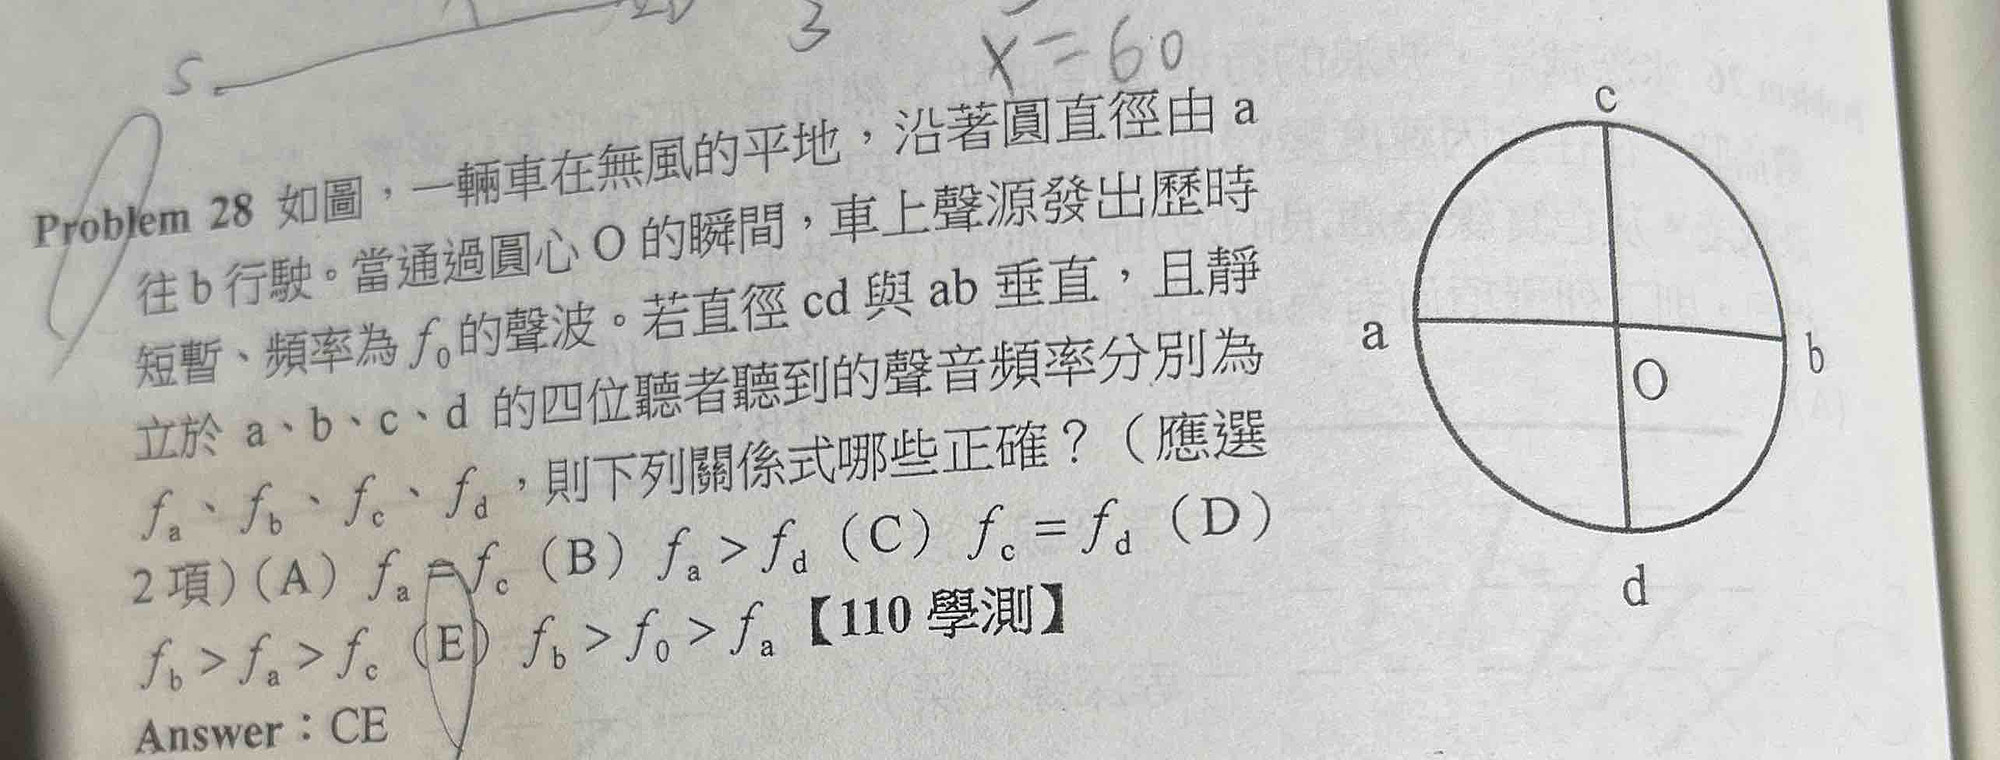 S
3
x=60
Problem 28 如圖，一輛車在無風的平地，沿著圓直徑由 a
往 b 行駛。當通過圓心 O 的瞬間，車上聲源發出歷時
短暫、頻率為 f₀ 的聲波。若直徑 cd 與 ab 垂直，且靜
立於 a、b、c、d 的四位聽者聽到的聲音頻率分別為
fa、fb、fc、fd，則下列關係式哪些正確？（應選
2 項）（A） fa = fc （B） fa > fd （C） fc = fd （D）
fb > fa > fc （E） fb > f₀ > fa 【110 學測】
Answer：CE
c
a
b
O
d